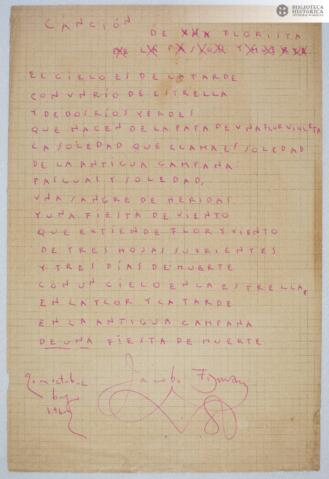 BIBLIOTECA
HISTÓRICA
CANCIÓN
DE FLORISTA
EL CIELO ES DE LA TARDE
CON UN RÍO DE ESTRELLA
Y DE DOS RÍOS VERDES
QUE NACEN DE LA PAPA DE UNA FLOR VIOLETA
LA SOLEDAD QUE LLAMA ES SOLEDAD
DE LA ANTIGUA CAMPANA
PASCUAS Y SOLEDAD,
UNA SANGRE DE HERIDAS
Y UNA FIESTA DE VIENTO
QUE EXTIENDE FLOR Y VIENTO
DE TRES HOJAS SURIENTES
Y TRES DÍAS DE MUERTE
CON UN CIELO EN LA ESTRELLA,
EN LA FLOR Y LA TARDE
EN LA ANTIGUA CAMPANA
DE UNA FIESTA DE MUERTE
Jacobo Fijman